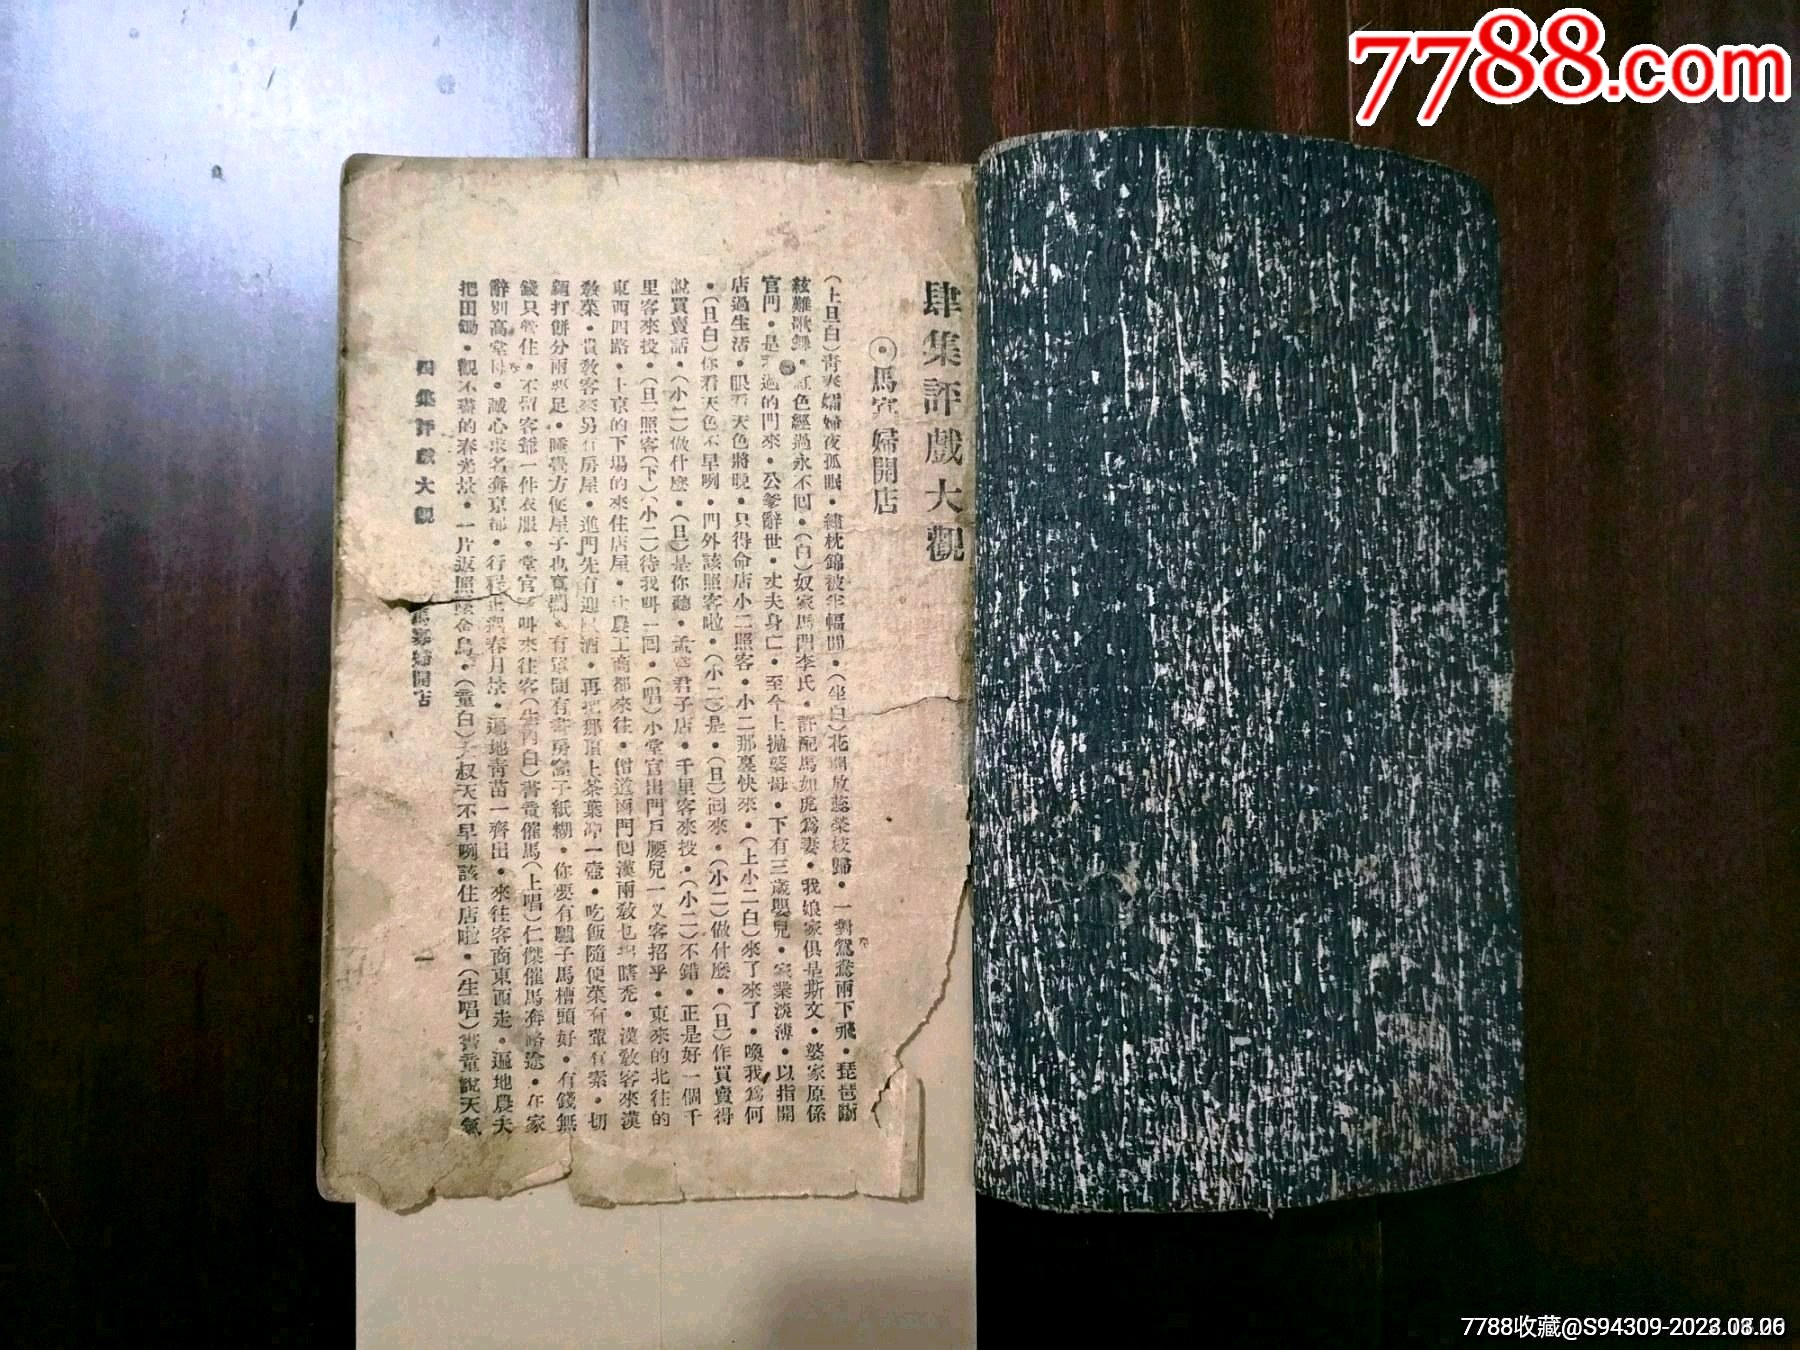 7788.com
肆集評戲大觀
◉馬寡婦開店
(上旦白)青春孀婦夜孤眠•繡枕錦被半幅閒•(坐白)花開放蕊榮枝歸•一對鴛鴦兩下飛•琵琶斷
絃難歌舞•紅色經過永不回•(白)奴家馬門李氏•許配馬如虎爲妻•我娘家俱是斯文•婆家原係
官門•是過的門來•公爹辭世•丈夫身亡•至今上拋婆母•下有三歲嬰兒•家業淡薄•以指開
店過生活•眼看天色將晚•只得命店小二照客•小二那裏快來•(上小二白)來了來了•喚我爲何
•(旦白)你看天色不早咧•門外該照客啦•(小二)是•(旦)回來•(小二)做什麼•(旦)作買賣得
說買賣話•(小二)做什麼•(旦)是你聽•孟嘗君子店•千里客來投•(小二)不錯•正是好一個千
里客來投•(旦)照客(下)(小二)待我叫一回•(唱)小堂官出門戶腰兒一叉客招乎•東來的北往的
東西四路•上京的下場的來住店屋•士農工商都來往•僧道兩門回漢兩教也瞎禿•漢教客來漢
教菜•貴教客來另有房屋•進門先有迎風酒•再把那頂上茶葉冲一壺•吃飯隨便菜有葷有素•切
麵打餅分兩要足•睡覺方便屋子也寬闊•有單間有書房窗子紙糊•你要有驢子馬槽頭好•有錢無
錢只管住•不留客爺一件衣服•堂官叫來往客(生內白)書童催馬(上唱)仁傑催馬奔路途•在家
辭別高堂母•誠心求名奔京都•行程正遇春月景•遍地青苗一齊出•來往客商東西走•遍地農夫
把田鋤•觀不盡的春光景•一片返照墜金烏•(童白)大叔天不早咧該住店啦•(生唱)書童說天氣
四集評戲大觀
馬寡婦開店
一
7788收藏@S94309-2023.03.06